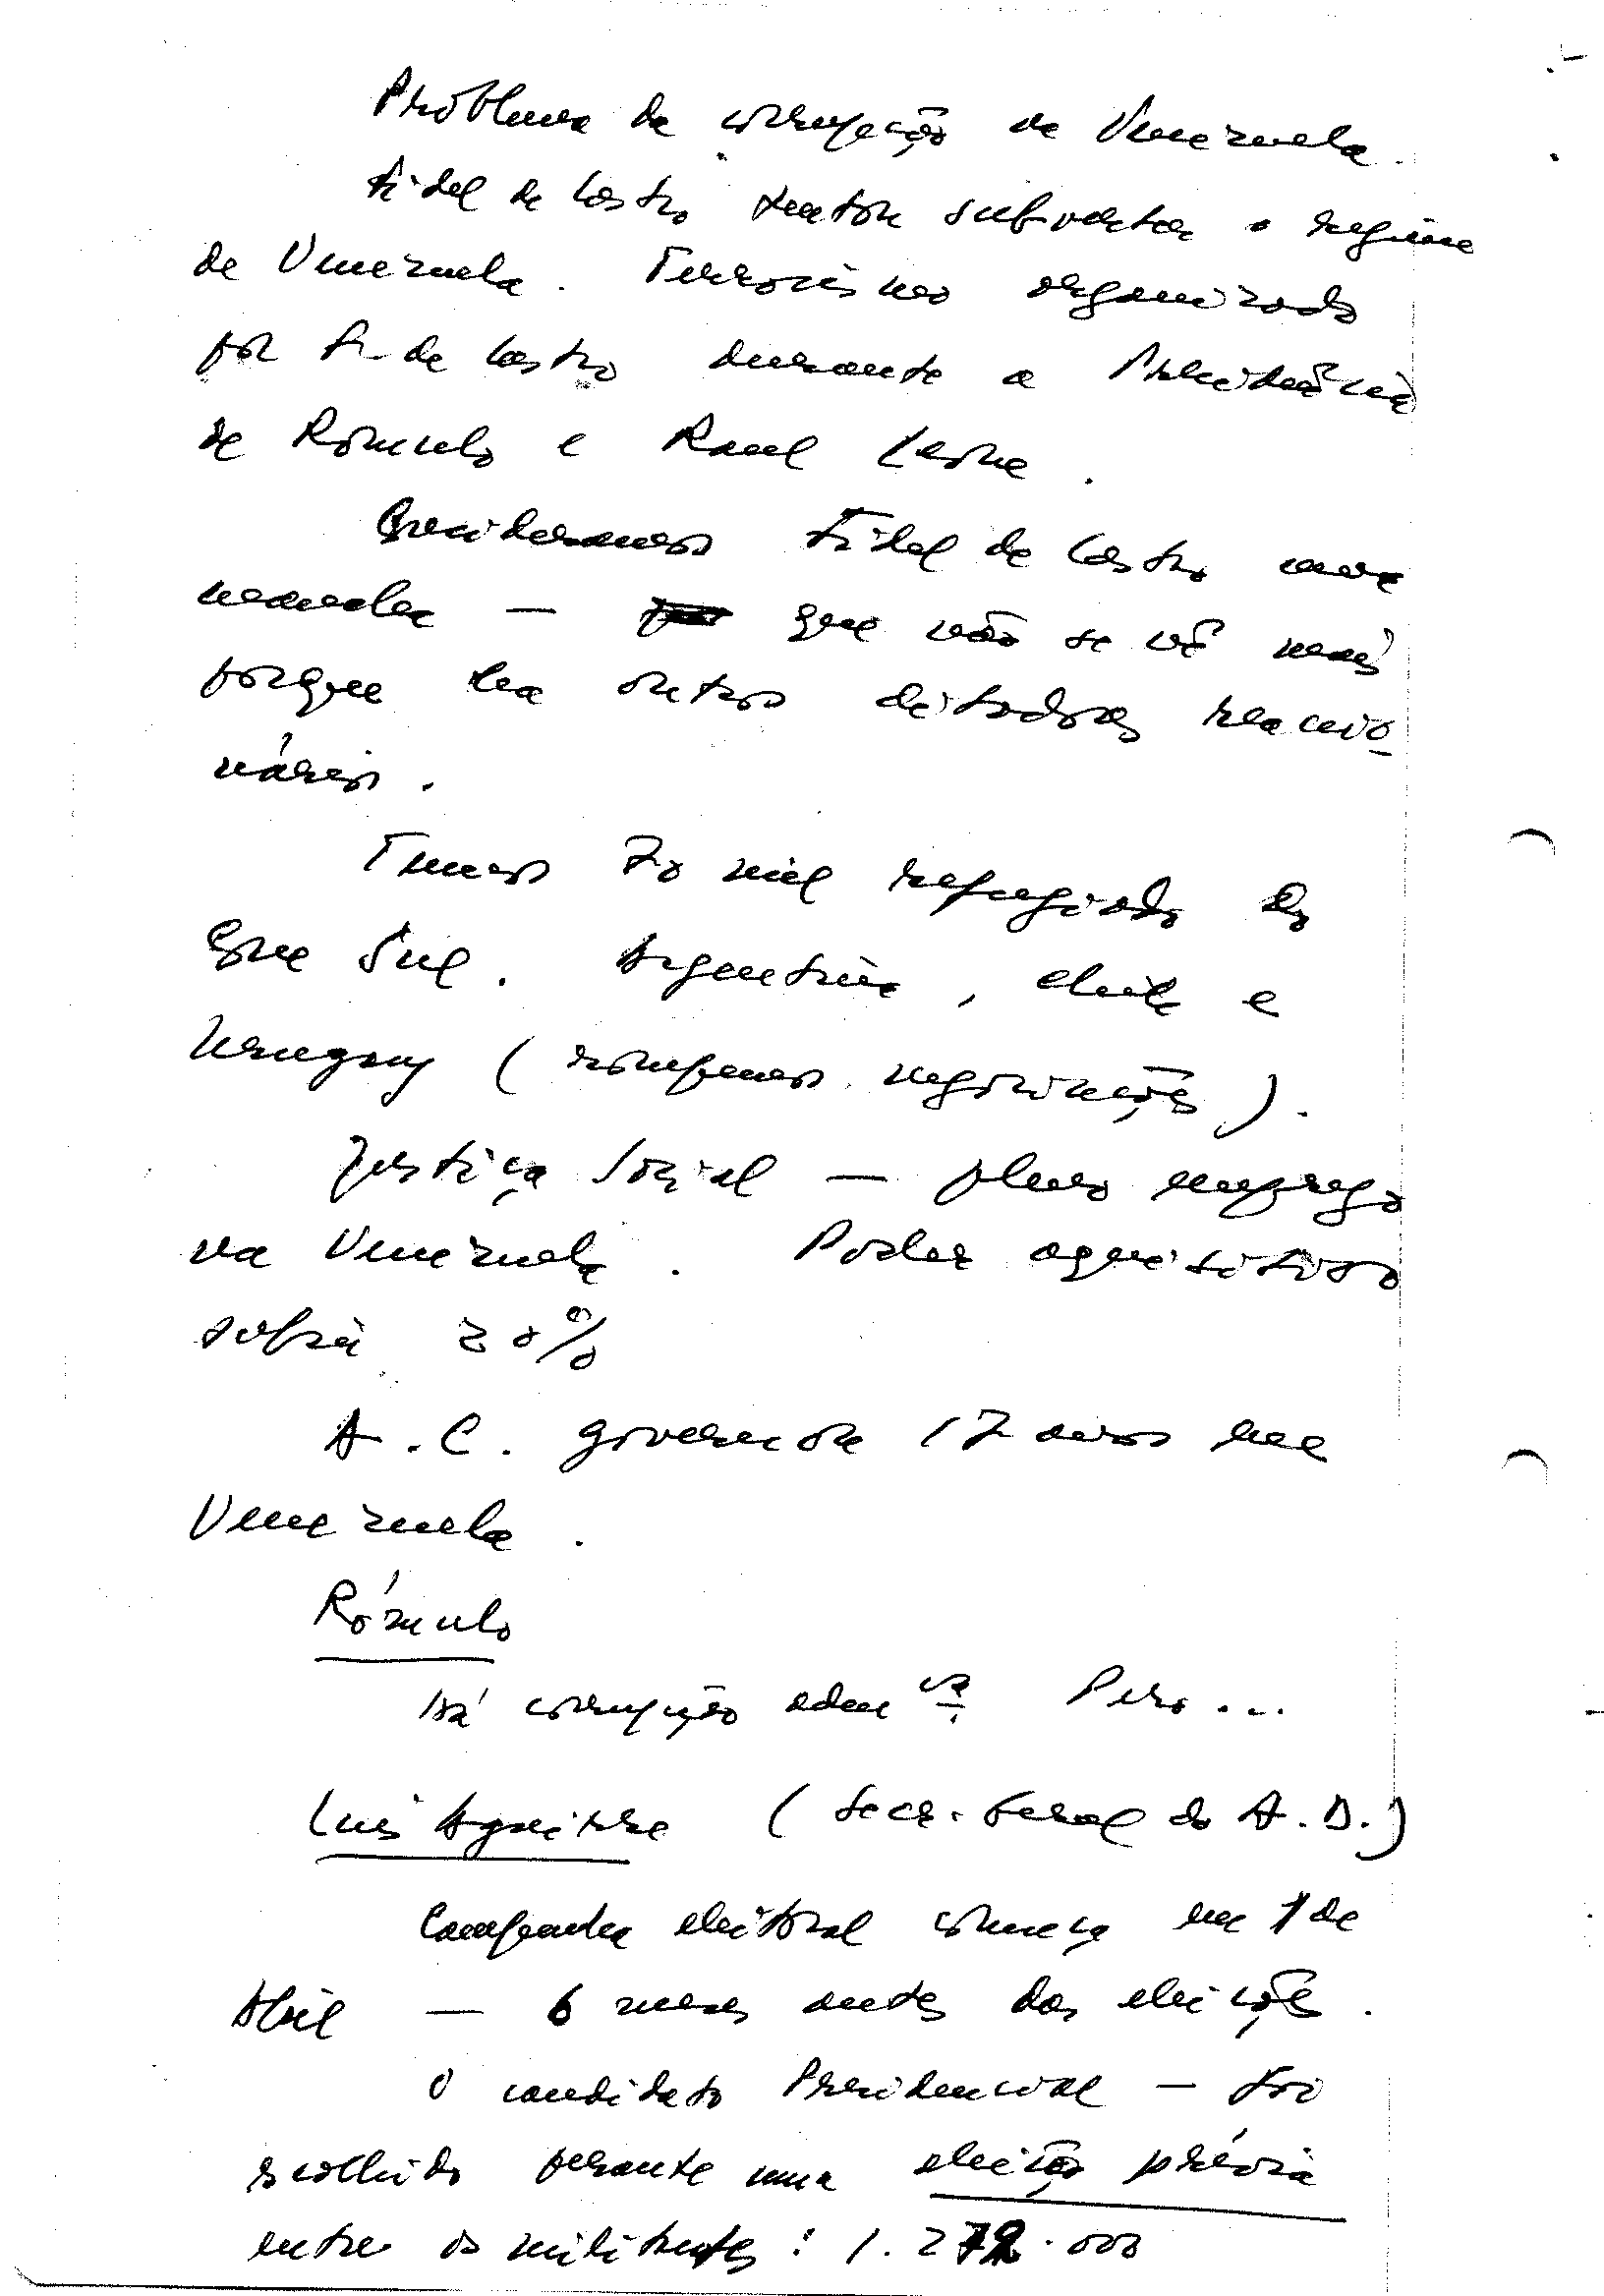 Problema da corrupção da Venezuela.
Fidel de Castro tentou subverter o regime
da Venezuela. Terrorismo organizado
por F. de Castro durante a Presidência
de Rómulo e Raul Leone.
Consideramos Fidel de Castro uma
mancha — que não se vê mais
porque há outros ditadores reacio-
nários.
Temos 70 mil refugiados do
Cone Sul. Argentina, Chile e
Uruguay (rompemos negociações).
Justiça Social — pleno emprego
na Venezuela. Poder aquisitivo
subiu 20%
A. C. governou 17 anos na
Venezuela.
Rómulo
Há corrupção adm va. Pero...
Luis Aguirre (Secr. Geral do A. D.)
Campanha eleitoral começa em 1 de
Abril — 6 meses antes das eleições.
O candidato Presidencial — foi
escolhido perante uma eleição prévia
entre os militantes: 1.272.000